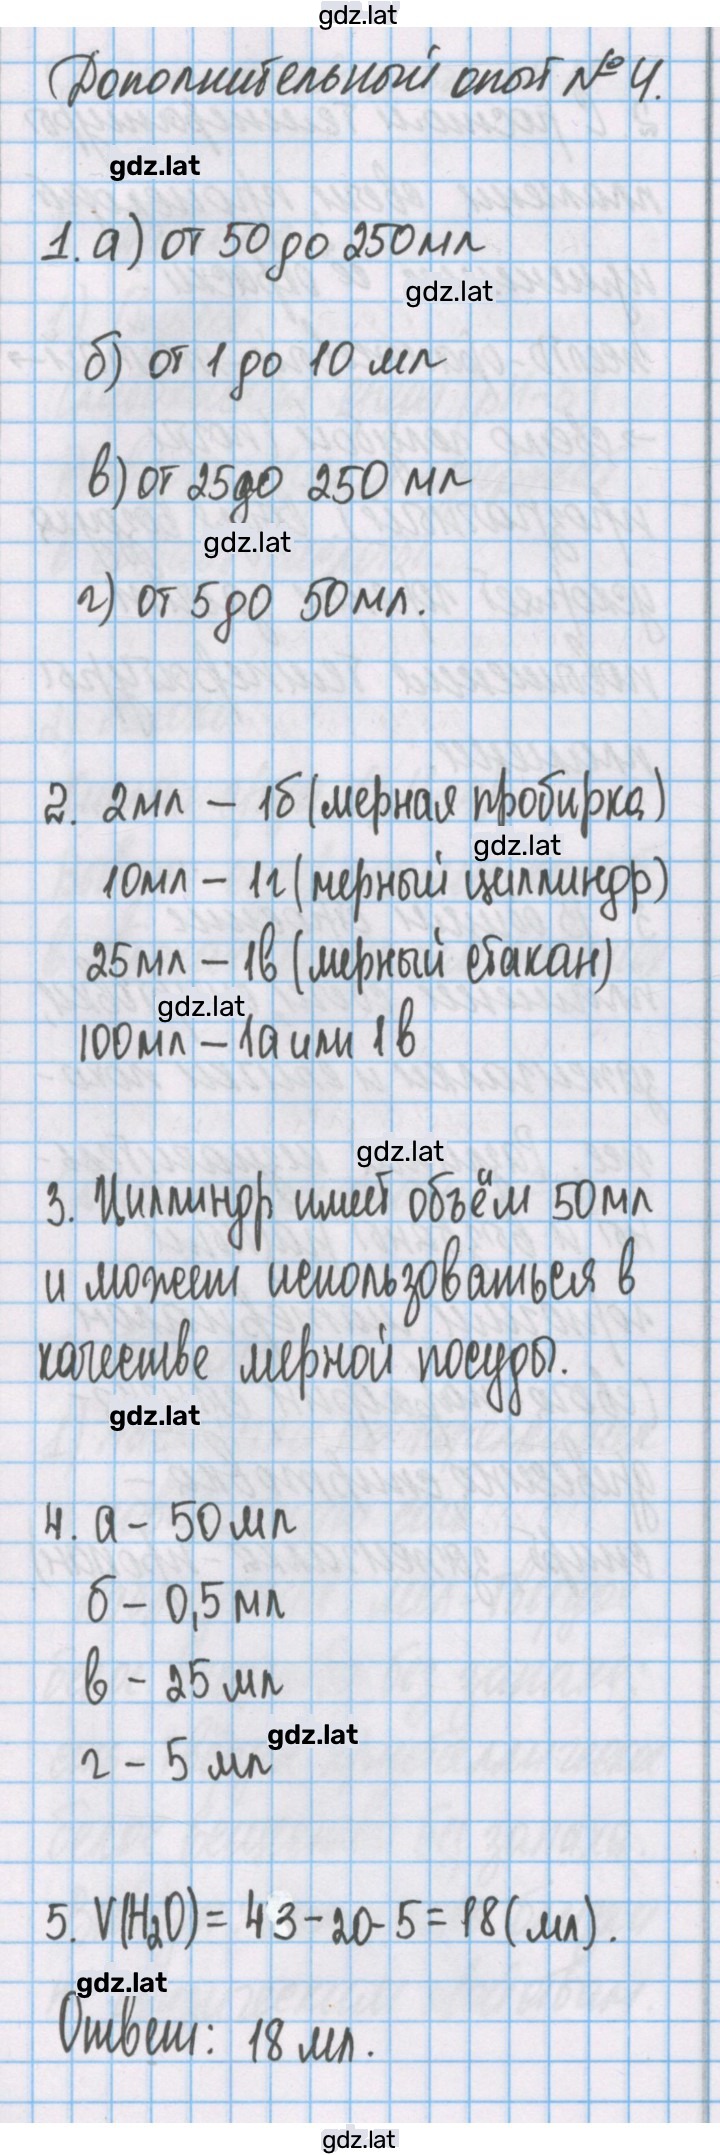 gdz.lat
Дополнительный опыт № 4.
gdz.lat
1. а) от 50 до 250 мл
gdz.lat
б) от 1 до 10 мл
в) от 25 до 250 мл
gdz.lat
г) от 5 до 50 мл.
2. 2 мл – 1б (мерная пробирка)
gdz.lat
10 мл – 1г (мерный циллиндр)
25 мл – 1в (мерный стакан)
gdz.lat
100 мл – 1а или 1в
gdz.lat
3. Циллиндр имеет объём 50 мл
и может использоваться в
качестве мерной посуды.
gdz.lat
4. а – 50 мл
б – 0,5 мл
в – 25 мл
gdz.lat
г – 5 мл
5. V(H₂O) = 43 – 20 - 5 = 18 (мл).
gdz.lat
Ответ: 18 мл.
gdz.lat